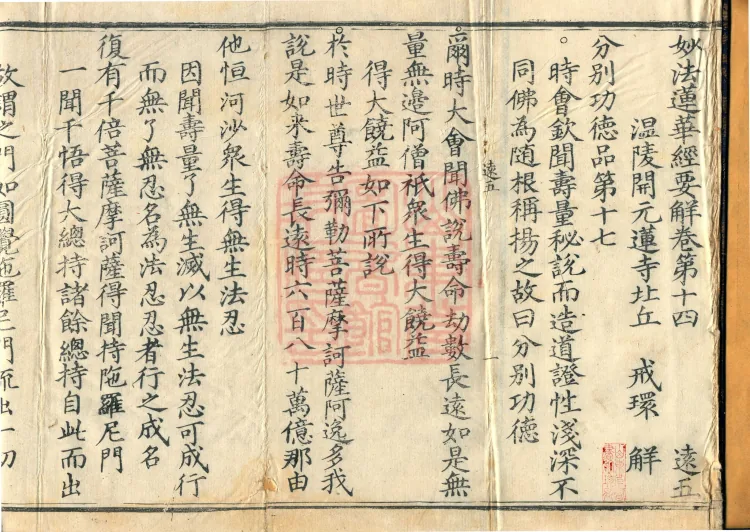 妙法蓮華經要解卷第十四 遠五
溫陵開元蓮寺比丘 戒環 解
分別功德品第十七
時會欽聞壽量秘說而造道證性淺深不
同佛為隨根稱揚之故曰分別功德
遠五 一
爾時大會聞佛說壽命劫數長遠如是無
量無邊阿僧祇衆生得大饒益
得大饒益如下所說
於時世尊告彌勒菩薩摩訶薩阿逸多我
說是如来壽命長遠時六百八十萬億那由
他恒河沙衆生得無生法忍
因聞壽量了無生滅以無生法忍可成行
而無了無忍名為法忍忍者行之成名
復有千倍菩薩摩訶薩得聞持陁羅尼門
一聞千悟得大總持諸餘總持自此而出
故謂之門如圓覺陁羅尼門流出一切